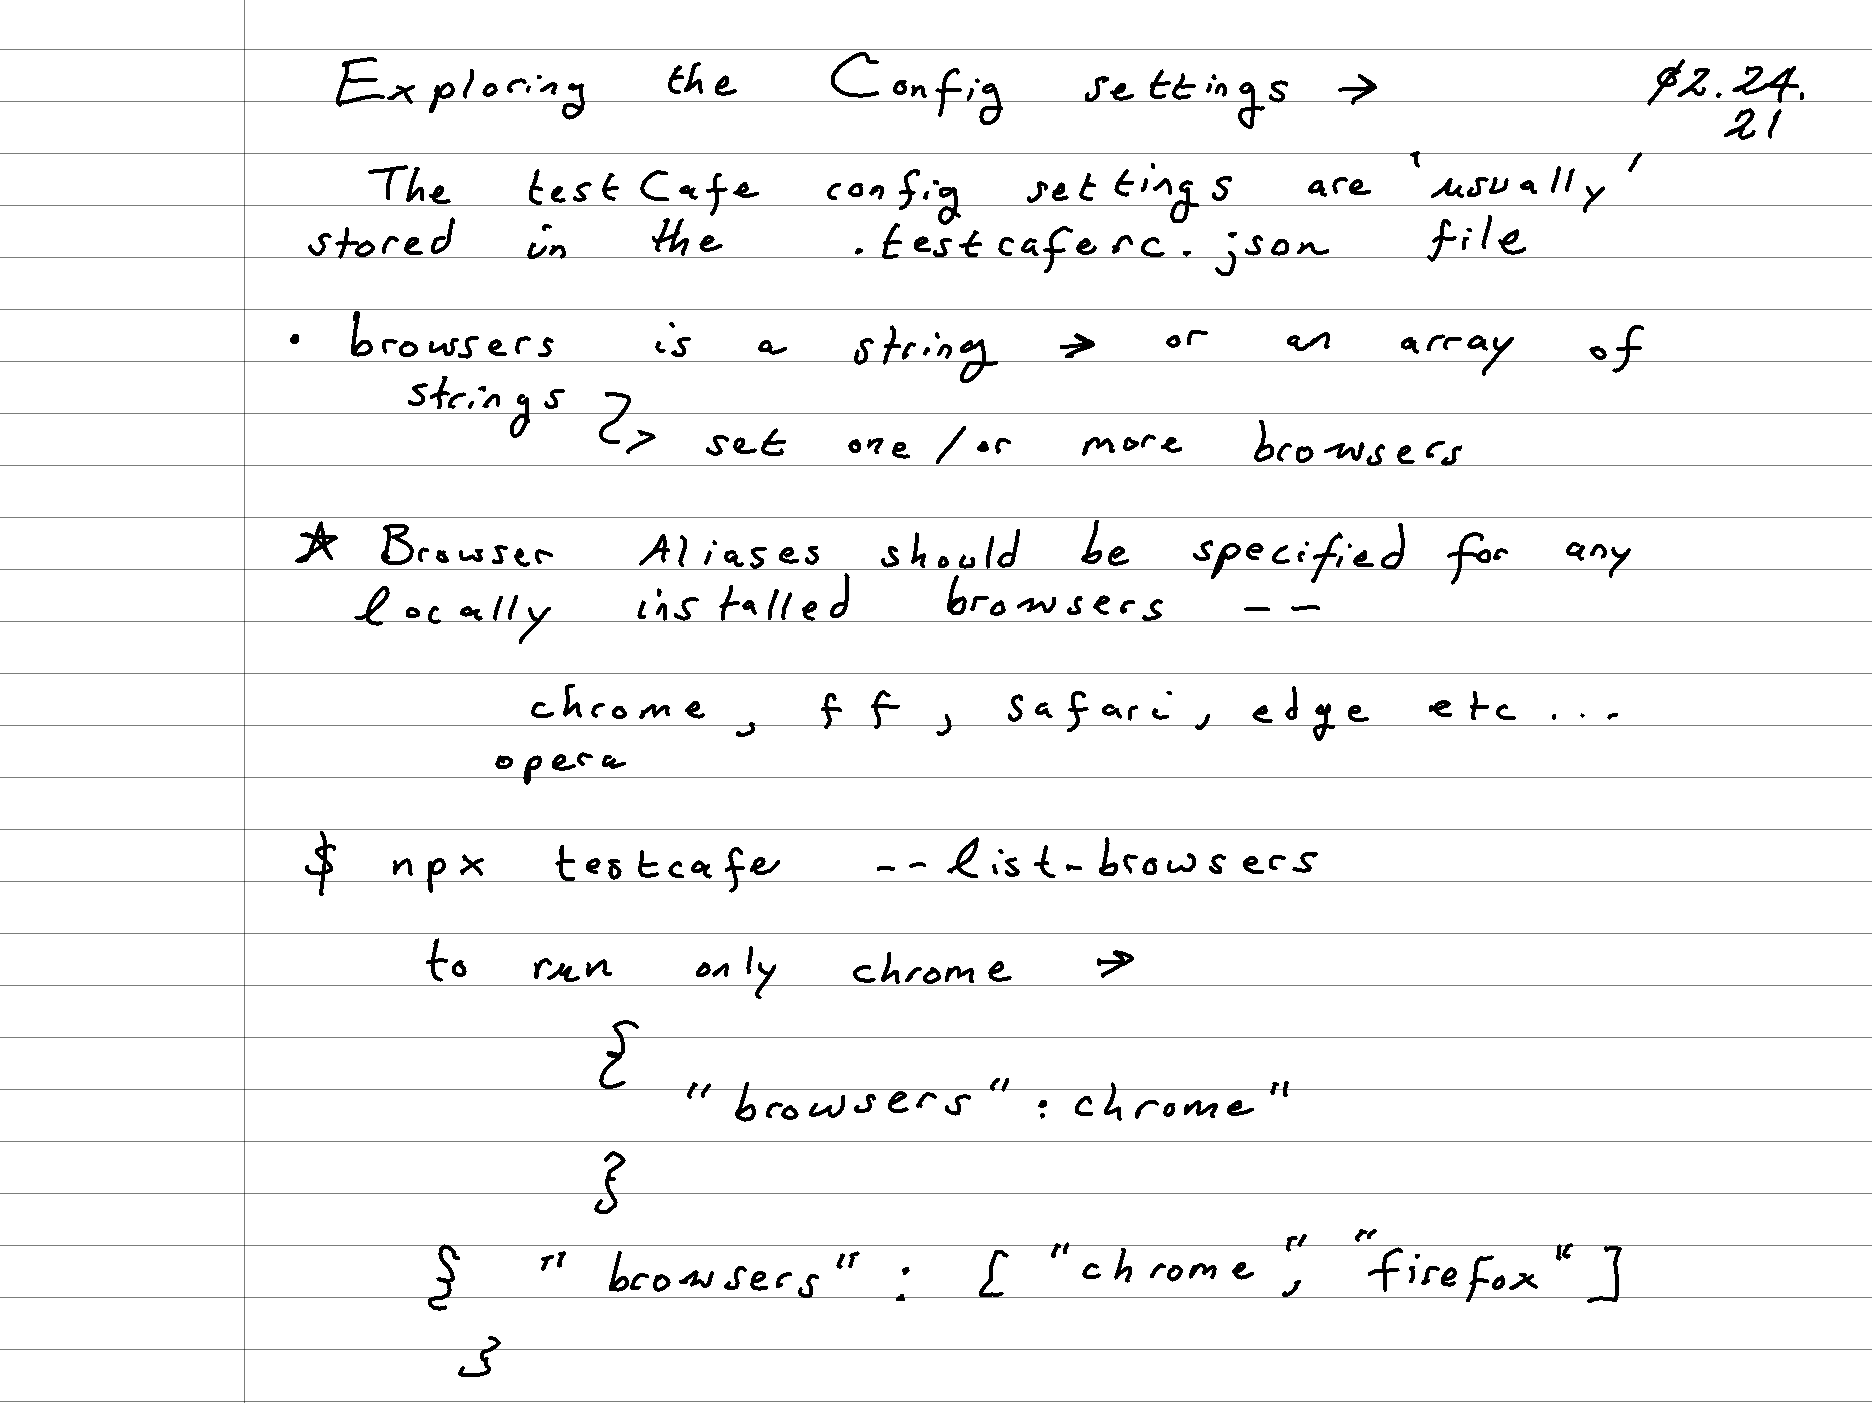 Exploring the Config settings → 02.24.
21
The testCafe config settings are 'usually'
stored in the .testcaferc.json file
• browsers is a string → or an array of
strings
→ set one/or more browsers
★ Browser Aliases should be specified for any
locally installed browsers --
chrome, ff, safari, edge etc...
opera
$ npx testcafe --list-browsers
to run only chrome →
{
"browsers" : chrome"
}
{ "browsers" : [ "chrome", "firefox" ]
}